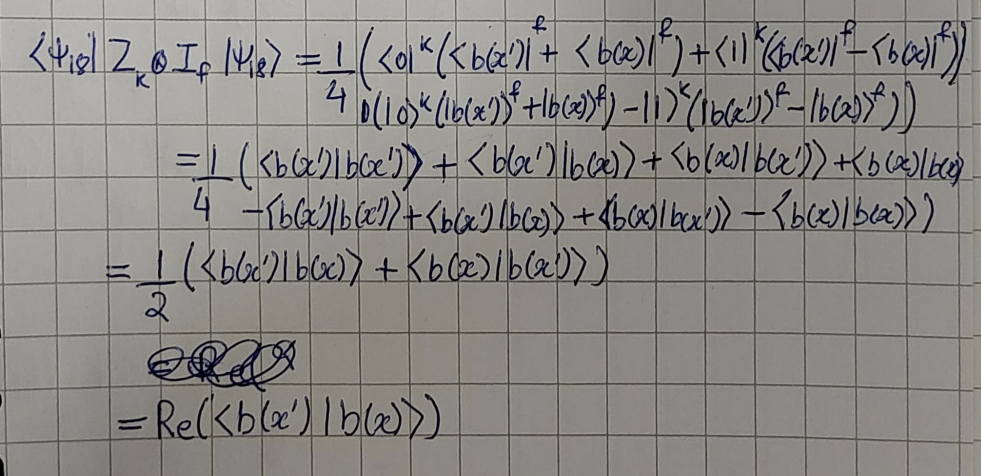 ⟨Ψ₁₈| Z_k ⊗ I_f |Ψ₁₈⟩ = 1/4 (⟨0|^k (⟨b(x')|^f + ⟨b(x)|^f) + ⟨1|^k (⟨b(x')|^f − ⟨b(x)|^f))
(|0⟩^k (|b(x')⟩^f + |b(x)⟩^f) − |1⟩^k (|b(x')⟩^f − |b(x)⟩^f))
= 1/4 (⟨b(x')|b(x')⟩ + ⟨b(x')|b(x)⟩ + ⟨b(x)|b(x')⟩ + ⟨b(x)|b(x)
− ⟨b(x')|b(x')⟩ + ⟨b(x')|b(x)⟩ + ⟨b(x)|b(x')⟩ − ⟨b(x)|b(x)⟩)
= 1/2 (⟨b(x')|b(x)⟩ + ⟨b(x)|b(x')⟩)
= Re(⟨b(x')|b(x)⟩)